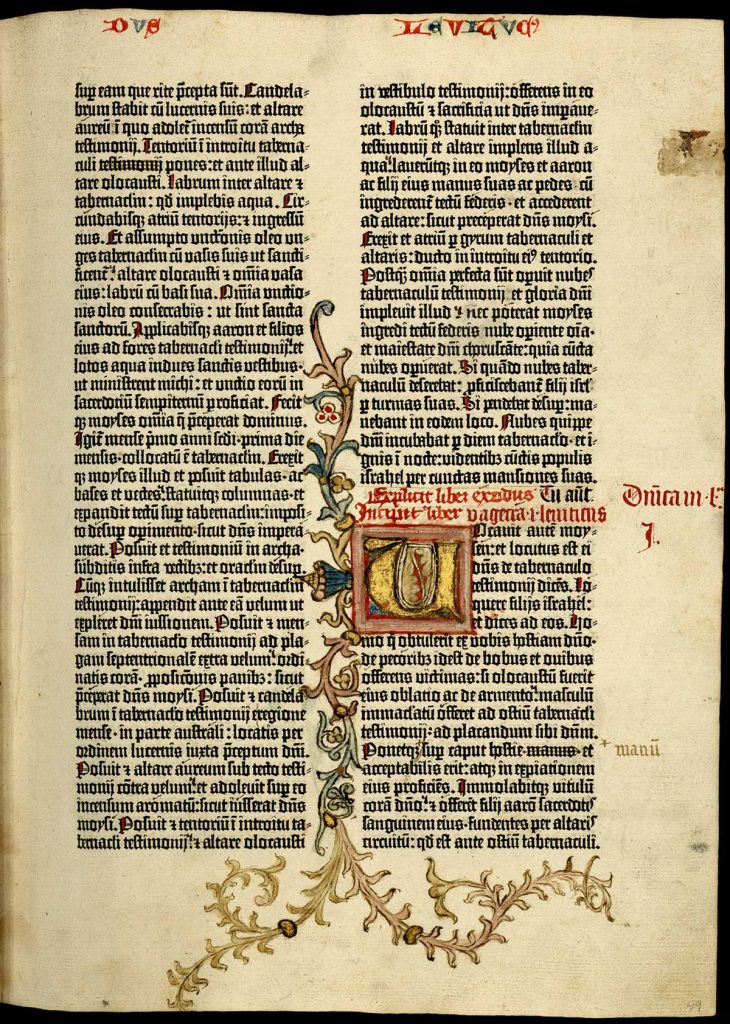 DVS
LEVITICVS
sup eam que rite p̄cepta sūt. Candela⸗
brum stabit cū lucernis suis: et altare
aureū ī quo adoleť incensū corā archa
testimonij. Tentoriū ī introitu taberna⸗
culi testimonij pones: et ante illud al⸗
tare olocausti. Labrum inter altare ⁊
tabernaclm: qd implebis aqua. Cir⸗
cūdabisqȝ atriū tentorijs: ⁊ ingressū
eius. Et assumpto unctionis oleo un⸗
ges tabernaclm cū vasis suis ut sancti⸗
ficent᷑: altare olocausti ⁊ om̄ia vasa
eius: labrū cū basi sua. Om̄ia unctio⸗
nis oleo consecrabis: ut sint sancta
sanctorū. Applicabisqȝ aaron et filios
eius ad fores tabernacli testimonij: et
lotos aqua indues sanctis vestibus·
ut ministrent michi: et unctio eorū in
sacerdotiū sempiternū proficiat. Fecit
qȝ moyses om̄ia q̄ p̄ceperat dominus.
Igit᷑ mense p̄mo anni secūdi · prima die
mensis · collocatū ē tabernaclm. Erexit
qȝ moyses illud et posuit tabulas · ac
bases et vectes: statuitqȝ columnas · et
expandit tectū sup tabernaclm: imposi⸗
to desup operimento · sicut dn̄s impera⸗
uerat. Posuit et testimoniū in archa·
subditis infra vectibȝ: et oraclm desup.
Cūqȝ intulisset archam ī tabernaclm
testimonij: appendit ante eā velum ut
expleret dn̄i iussionem. Posuit et men⸗
sam in tabernaclo testimonij ad pla⸗
gam septentrionalē extra velum: ordi⸗
natis corā p̄posicionis panibȝ: sicut
p̄ceperat dn̄s moysi. Posuit ⁊ candela⸗
brum ī tabernaclo testimonij e regione
mense · in parte australi: locatis per
ordinem lucernis iuxta p̄ceptum dn̄i.
Posuit ⁊ altare aureum sub tecto testi⸗
monij cōtra velum: et adoleuit sup eo
incensum aromatū: sicut iusserat dn̄s
moysi. Posuit ⁊ tentoriū ī introitu ta⸗
bernacli testimonij: ⁊ altare olocausti
in vestibulo testimonij: offerens in eo
olocaustū ⁊ sacrificia ut dn̄s impaue⸗
rat. Labrū qȝ statuit inter tabernaclm
testimonij et altare implens illud a⸗
qua: lauerūtqȝ in eo moyses et aaron
ac filij eius manus suas ac pedes · cū
ingrederent᷑ tectū federis · et accederent
ad altare: sicut preceperat dn̄s moysi.
Erexit et atriū p gyrum tabernaculi et
altaris: ducto in introitu eiꝰ tentorio.
Postqȝ om̄ia perfecta sūt operuit nubes
tabernaculū testimonij et gloria dn̄i
impleuit illud · nec poterat moyses
ingredi tectū federis nube operiente om̄ia·
et maiestate dn̄i choruscante: quia cūcta
nubes operuerat. Si quādo nubes taber⸗
naculū deserebat: pficiscebant᷑ filij isrl
p turmas suas. Si pendebat desup: ma⸗
nebant in eodem loco. Nubes quippe
dn̄i incubabat p diem tabernaclo · et i⸗
gnis ī nocte: videntibȝ cūctis populis
israhel per cunctas mansiones suas.
Explicit liber exodus
Incipit liber vagecra · i · leuiticus
Vocauit autē moy⸗
sen: et locutus est ei
dn̄s de tabernaculo
testimonij dicēs. Lo⸗
quere filijs israhel:
et dices ad eos. Ho⸗
mo q̄ obtulerit ex vobis hostiam dn̄o·
de pecoribȝ idest de bobus et ouibus
offerens victimas: si olocaustū fuerit
eius oblatio ac de armento: masculū
immaclatū offeret ad ostiū tabernacli
testimonij · ad placandum sibi dn̄m.
Ponetqȝ sup caput hostie manus · et
acceptabilis erit: atqȝ in expiationem
eius proficiēs. Immolabitqȝ vitulū
corā dn̄o: ⁊ offerēt filij aarō sacerdotes
sanguinem eius · fundentes per altaris
circuitū: qd est ante ostiū tabernaculi.
J.
+ manū
49